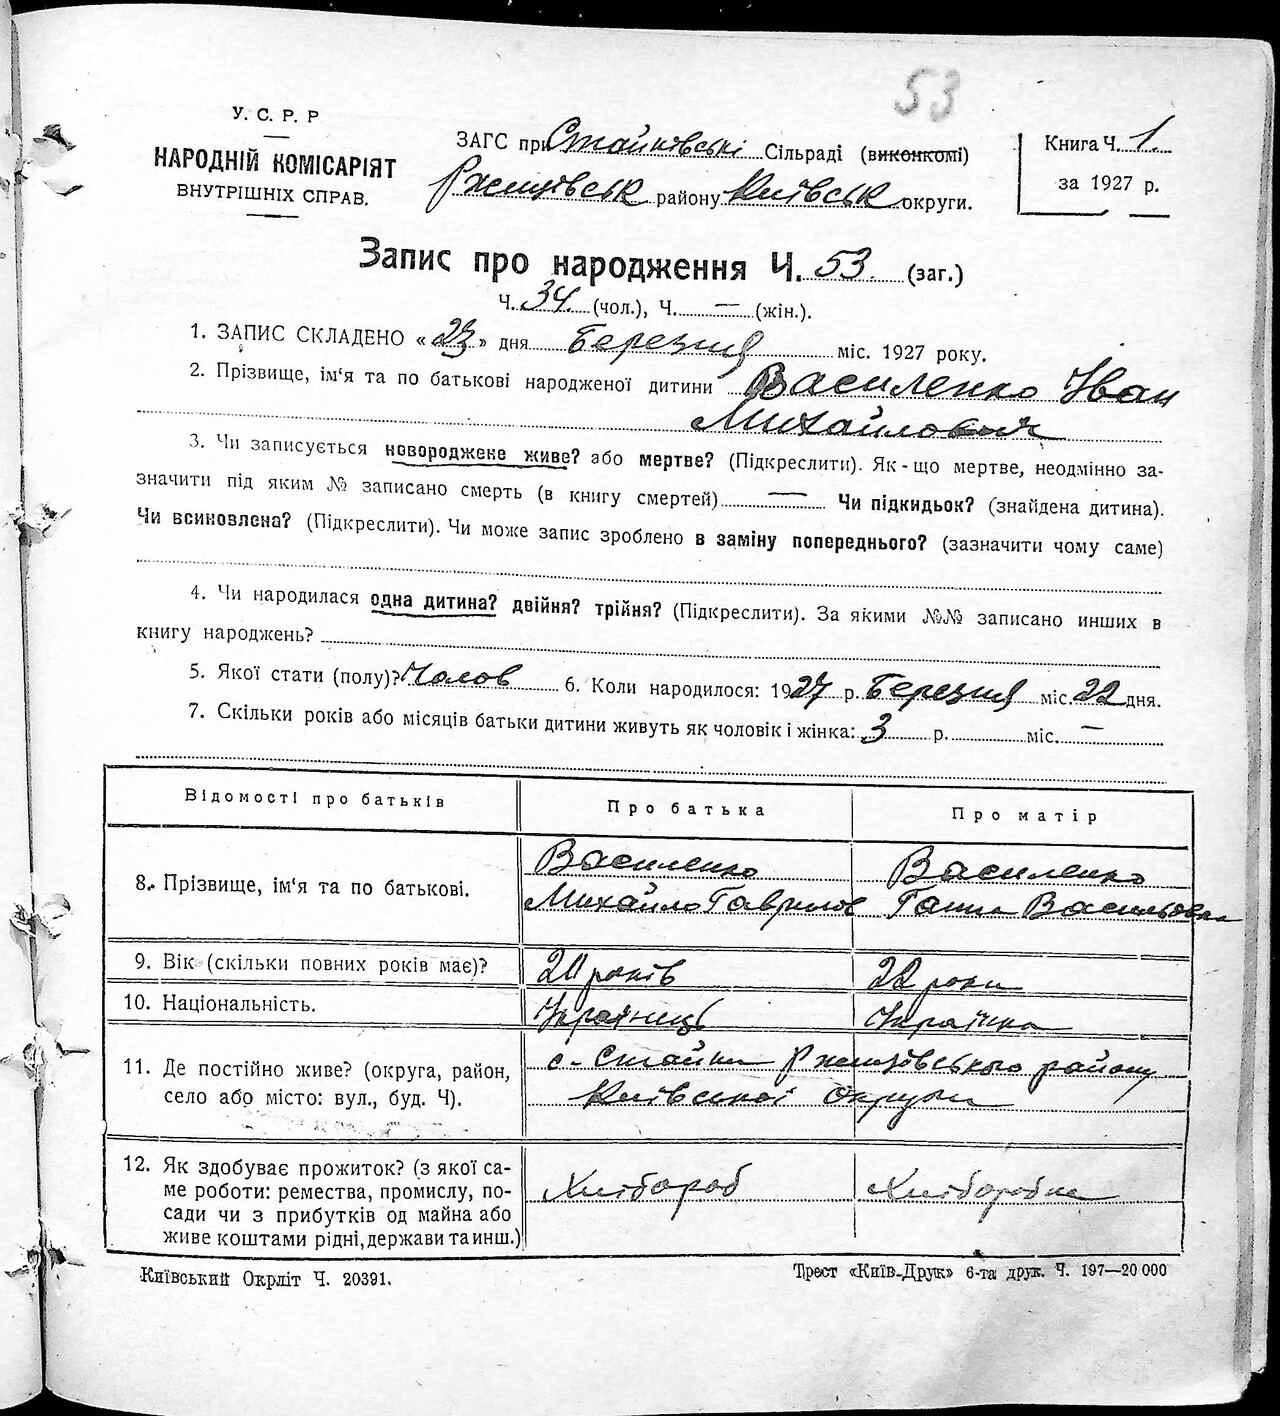 53
У. С. Р. Р
НАРОДНІЙ КОМІСАРІЯТ
ВНУТРІШНІХ СПРАВ.
ЗАГС при Стайківські Сільраді (виконкомі)
Ржищівськ району Київськ округи.
Книга Ч. 1.
за 1927 р.
Запис про народження Ч. 53. (заг.)
Ч. 34. (чол.), Ч. — (жін.).
1. ЗАПИС СКЛАДЕНО «23» дня Березня міс. 1927 року.
2. Прізвище, ім'я та по батькові народженої дитини Василенко Іван
Михайлович
3. Чи записується новороджене живе? або мертве? (Підкреслити). Як-що мертве, неодмінно за-
значити під яким № записано смерть (в книгу смертей) — Чи підкидьок? (знайдена дитина).
Чи всиновлена? (Підкреслити). Чи може запис зроблено в заміну попереднього? (зазначити чому саме)
4. Чи народилася одна дитина? двійня? трійня? (Підкреслити). За якими №№ записано инших в
книгу народжень?
5. Якої стати (полу)? Чолов 6. Коли народилося: 1927 р. Березня міс. 22 дня.
7. Скільки років або місяців батьки дитини живуть як чоловік і жінка: 3 р. міс. —
Відомості про батьків Про батька Про матір
8. Прізвище, ім'я та по батькові.
Василенко Василенко
Михайло Гаврилов Ганна Васильовна
9. Вік (скільки повних років має)? років 22 роки
10. Національність. Українець Українка
11. Де постійно живе? (округа, район,
село або місто: вул., буд. Ч).
с. Стайки Ржищівського району
Київської Округи
12. Як здобуває прожиток? (з якої са-
ме роботи: ремества, промислу, по-
сади чи з прибутків од майна або
живе коштами рідні, держави та инш.)
Хлібороб Хліборобка
Київський Окрліт Ч. 20391.
Трест «Київ-Друк» 6-та друк. Ч. 197—20 000